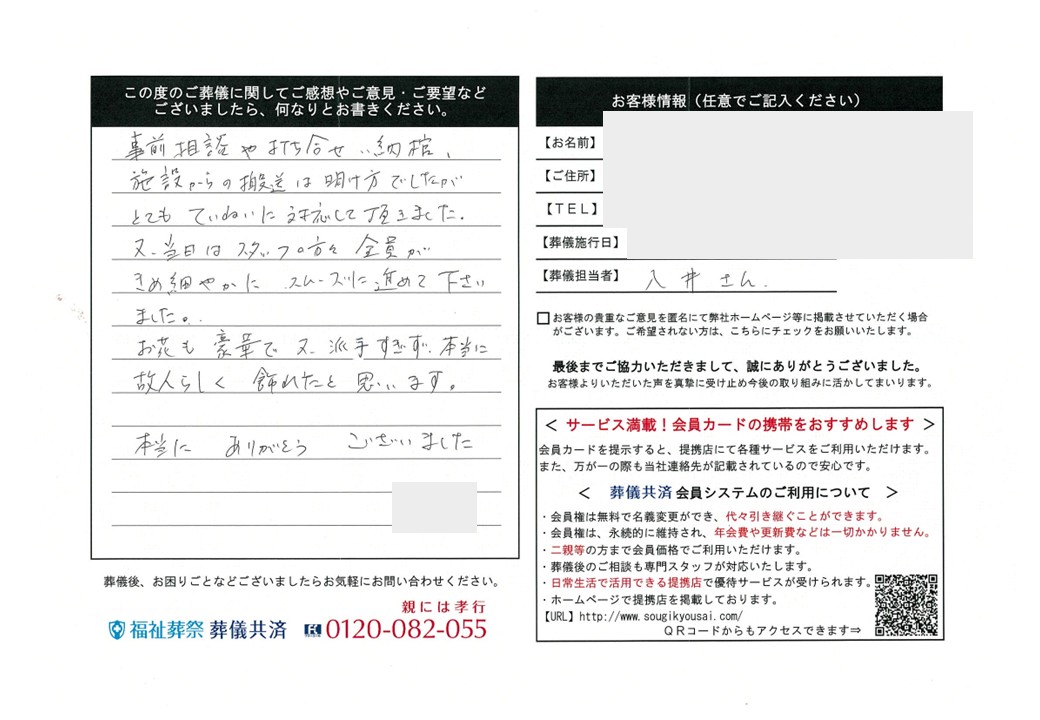 この度のご葬儀に関してご感想やご意見・ご要望など
ございましたら、何なりとお書きください。
事前相談や打ち合せ、納棺、
施設からの搬送は明け方でしたが
とても ていねいに 対応して頂きました。
又、当日は スタッフの方々 全員が
きめ細やかに スムーズに進めて下さい
ました。
お花も 豪華で 又、派手すぎず、本当に
故人らしく 飾れたと 思います。
本当に ありがとう ございました
葬儀後、お困りごとなどございましたらお気軽にお問い合わせください。
親には孝行
福祉葬祭 葬儀共済 0120-082-055
お客様情報（任意でご記入ください）
【お名前】
【ご住所】
【ＴＥＬ】
【葬儀施行日】
【葬儀担当者】 入井 さん.
□お客様の貴重なご意見を匿名にて弊社ホームページ等に掲載させていただく場合
がございます。ご希望されない方は、こちらにチェックをお願いいたします。
最後までご協力いただきまして、誠にありがとうございました。
お客様よりいただいた声を真摯に受け止め今後の取り組みに活かしてまいります。
＜ サービス満載！会員カードの携帯をおすすめします ＞
会員カードを提示すると、提携店にて各種サービスをご利用いただけます。
また、万が一の際も当社連絡先が記載されているので安心です。
＜ 葬儀共済 会員システムのご利用について ＞
・会員権は無料で名義変更ができ、代々引き継ぐことができます。
・会員権は、永続的に維持され、年会費や更新費などは一切かかりません。
・二親等の方まで会員価格でご利用いただけます。
・葬儀後のご相談も専門スタッフが対応いたします。
・日常生活で活用できる提携店で優待サービスが受けられます。
・ホームページで提携店を掲載しております。
【URL】http://www.sougikyousai.com/
ＱＲコードからもアクセスできます⇒